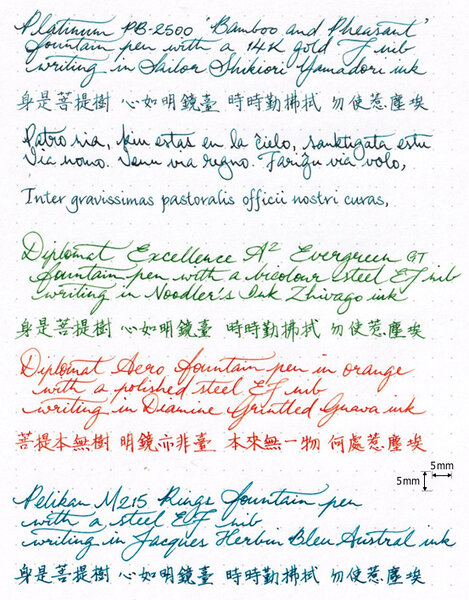 Platinum PB-2500 'Bamboo and Pheasant'
fountain pen with a 14K gold F nib
writing in Sailor Shikiori Yamadori ink
身是菩提樹 心如明鏡臺 時時勤拂拭 勿使惹塵埃
Patro nia, kiu estas en la ĉielo, sanktigata estu
via nomo. Venu via regno. Fariĝu via volo,
Inter gravissimas pastoralis officii nostri curas,
Diplomat Excellence A² Evergreen GT
fountain pen with a bicolour steel EF nib
writing in Noodler's Ink Zhivago ink
身是菩提樹 心如明鏡臺 時時勤拂拭 勿使惹塵埃
Diplomat Aero fountain pen in orange
with a polished steel EF nib
writing in Diamine Grintled Guava ink
菩提本無樹 明鏡亦非臺 本來無一物 何處惹塵埃
5mm
5mm
Pelikan M215 Rings fountain pen
with a steel EF nib
writing in Jacques Herbin Bleu Austral ink
身是菩提樹 心如明鏡臺 時時勤拂拭 勿使惹塵埃